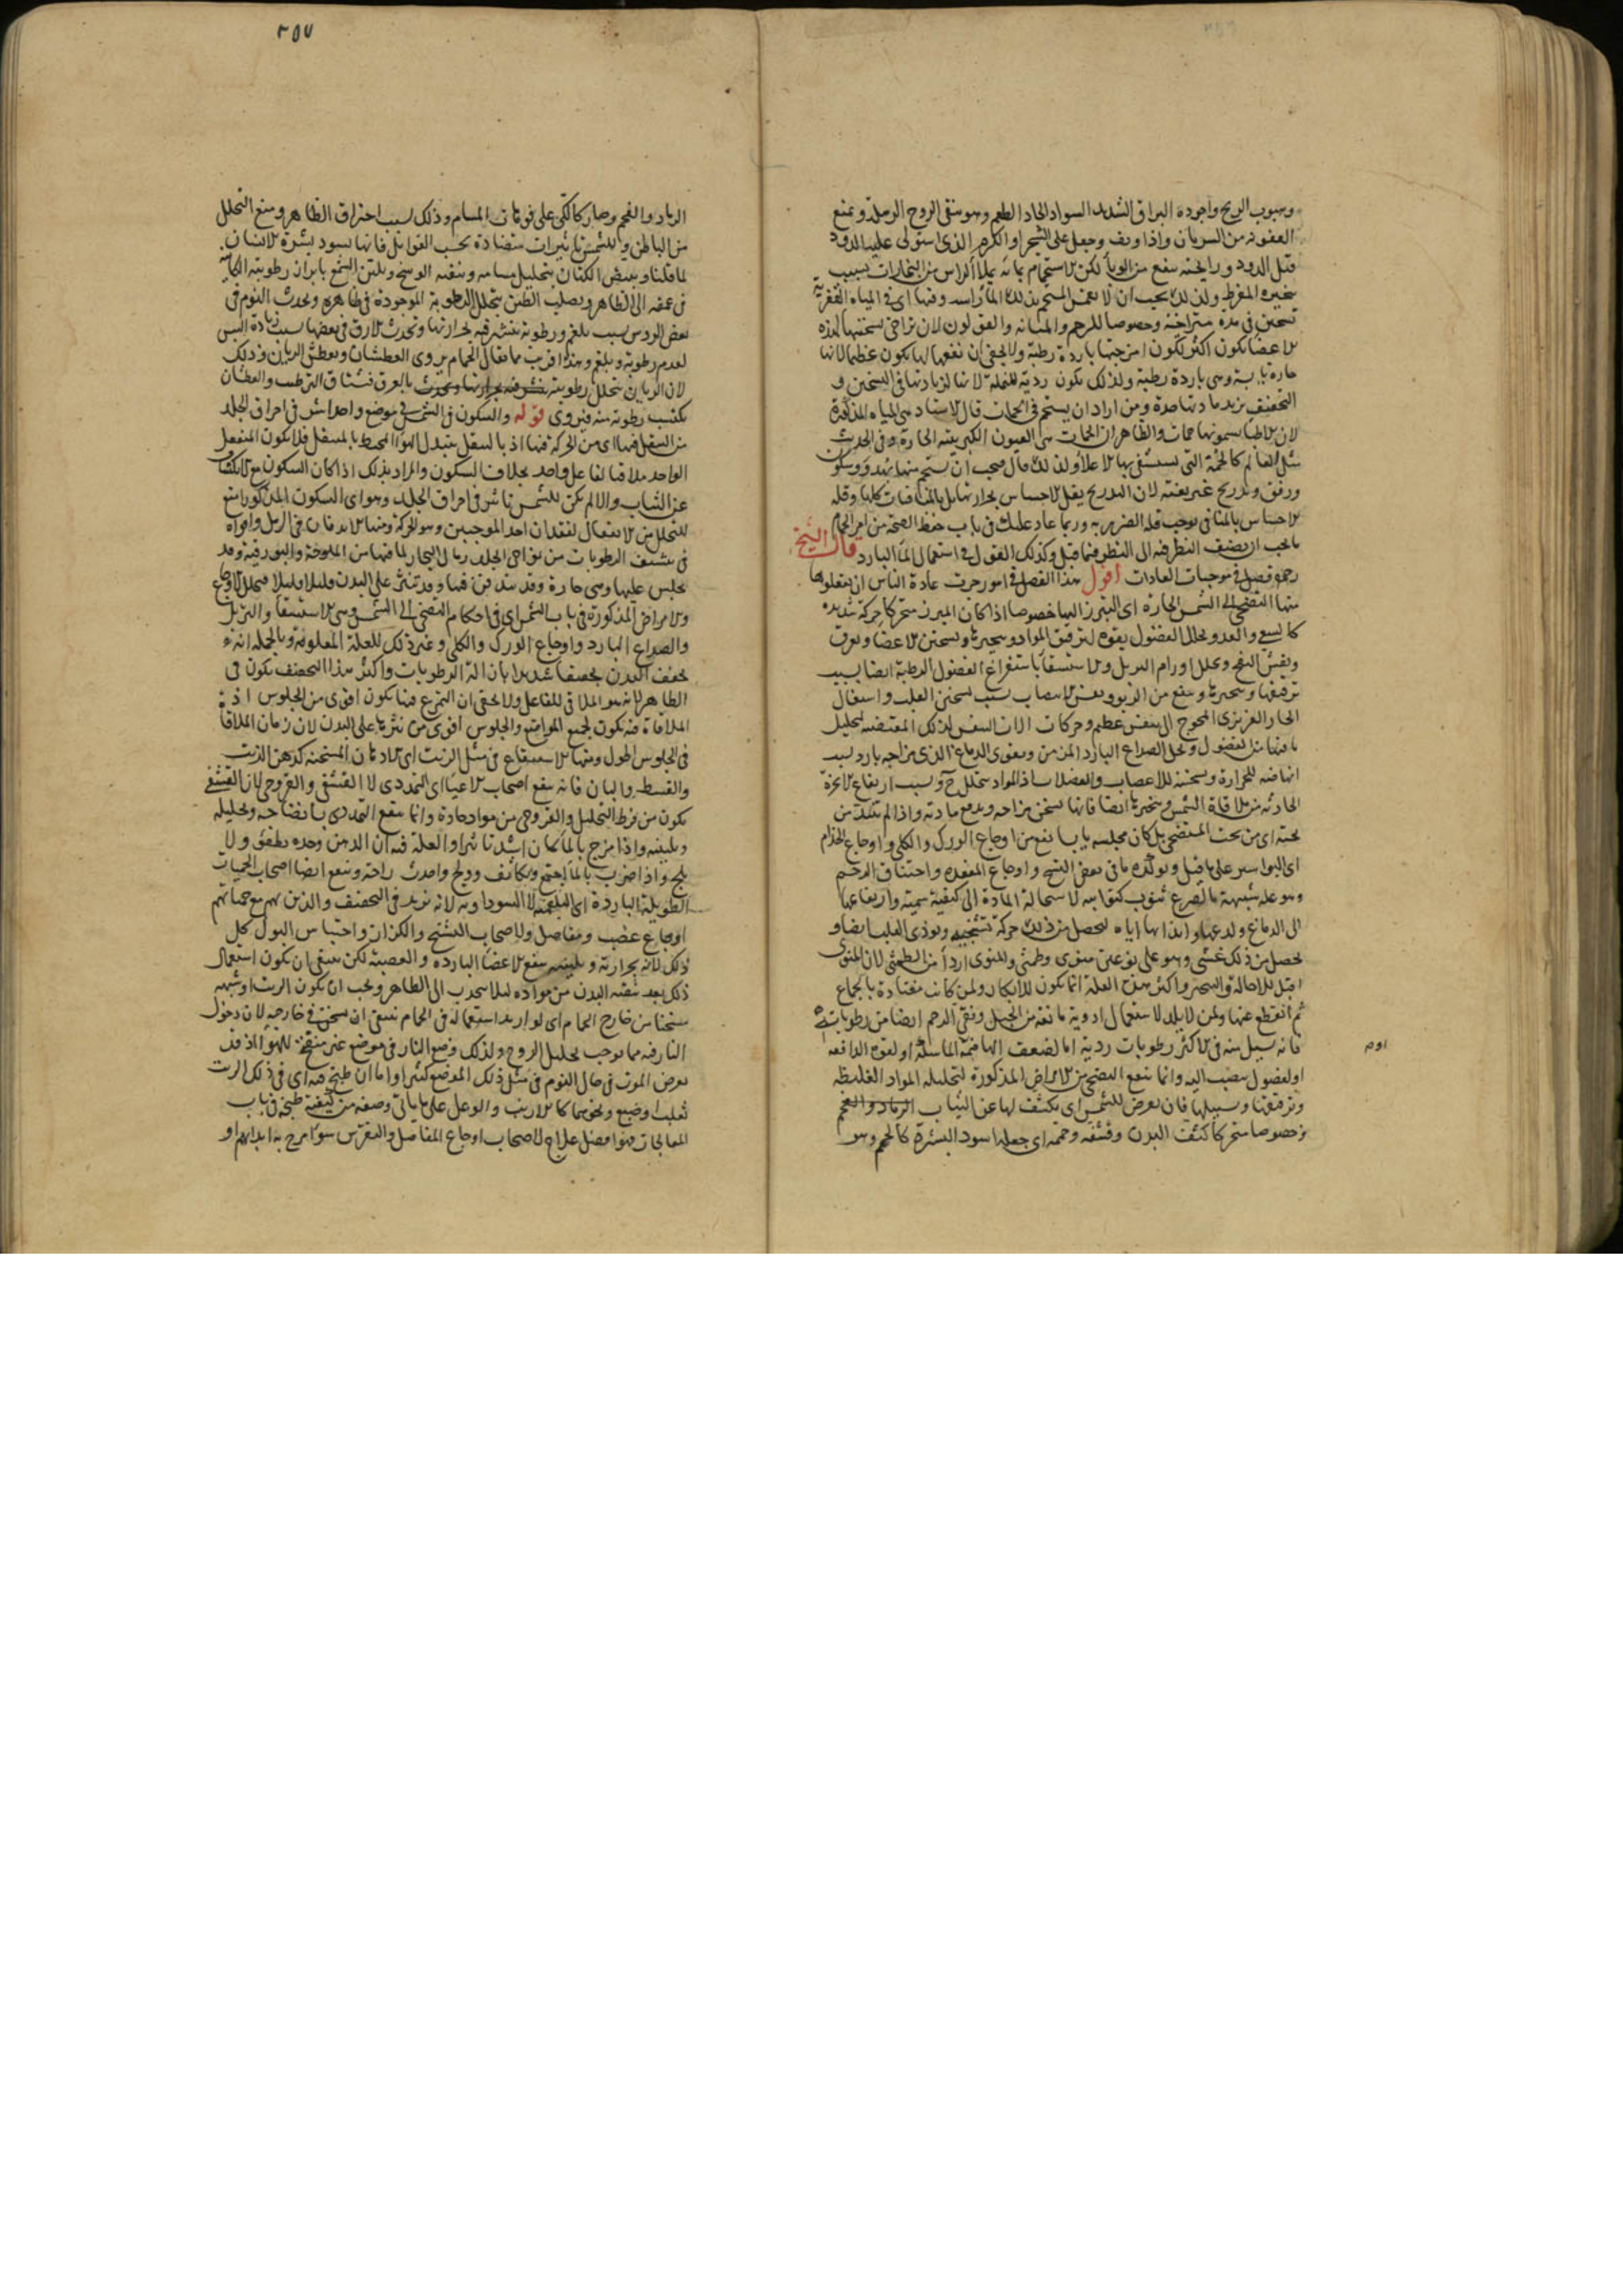 وهبوب الريح واجوده البراق الشديد السواد الحاد الطعم وهو ينقي الروح الرملة ويمنع
العفونة من السريان واذا وجعل على الشجر او الكرم الذي استولى عليه الدود
قتل الدود ورايحته ينفع من الوبا لكن الاستحمام بمائه يملأ الراس من البخارات بسبب
تبخيره المفرط ولذلك يجب ان لا يغمس المستحم بذلك الماء راسه وفيها اي في المياه القفرية
تسخين في مدة متراخية وخصوصا للرحم والمثانة والقولون لان تراخي تسخينها لهذه
الاعضا يكون اكثر لكون امزجتها باردة رطبة ولا يخفى ان نفعها لها يكون عظيما لانها
حارة يابسة وهي باردة رطبة ولذلك يكون ردية للنملة لانها لزيادتها في التسخين و
التجفيف يزيد مادتها حدة ومن اراد ان يستحم في الحمات قال الاستاد هي المياه الحارة
لان الاطبا يسمونها حمات والظاهر ان الحمات هي العيون الكبريتية الحارة وفي الحديث
مثل العالم كالحمة التي يستشفي بها الاعلا ولذلك قال فيجب ان يستحم فيها بهدو وسكون
ورفق وتدريج غير بغتة لان التدريج يقل الاحساس بحرارتها بل بالمنافيات كلها وقلة
الاحساس بالمنافي يوجب قلة الضرر به وربما عاد عليك في باب حفظ الصحة من امر الحمام
ما يجب ان يضيف النظر فيه الى النظر فيما قبل وكذلك القول في استعمال الماء البارد قال الشيخ
رحمه فصل في موجبات العادات اقول هذا الفصل في امور جرت عادة الناس ان يفعلوها
منها التضحي الى الشمس الحارة اي التبرز اليها خصوصا اذا كان المبرز متحركا حركة شديدة
كالسعي والعدو يحلل الفضول بقوة لترقيق المواد وتبخيرها وتسخين الاعضا ويعرق
ويفش النفخ ويحلل اورام التربل والاستسقا باستفراغ الفضول الرطبة ايضا بسبب
ترقيقها وتبخيرها وينفع من الربو ونفس الانتصاب بسبب تسخين القلب واشتعال
الحار الغريزي المحوج الى تنفس عظيم وحركات الات النفس لذلك المقتضية لتحليل
ما فيها من الفضول ويحل الصداع البارد المزمن ويقوي الدماغ الذي مزاجه بارد بسبب
انهاضه للحرارة وتسخينه للاعصاب والعضلات اذ المواد تتحلل ح وبسبب ارتفاع الابخرة
الحادثة من ملاقاة الشمس وتبخيرها ايضا فانها تسخن مزاجه وتدفع مادته واذا لم يبتل من
تحته اي من تحت المتضحي بل كان مجلسه يابسا نفع من اوجاع الورك والكلى واوجاع الجذام
اي البواسير على ما قيل ويؤكده ما في بعض النسخ واوجاع المقعدة واختناق الرحم
وهو علة شبيهة بالصرع تنوب كنوائبه لاستحالة المادة الى كيفية سمية وارتفاعها
الى الدماغ ولدغها وايذائها اياه ليحصل من ذلك حركة تشنجية ويوذي القلب ايضا و
يحصل من ذلك غشي وهو على نوعين منوي وطمثي والمنوي اردأ من الطمثي لان المنوي
اقبل للاحالة والتبخير واكثر هذه العلة انما يكون للابكار ولمن كانت معتادة بالجماع
ثم انقطع عنها ولمن لا يلد لاستعمال ادوية مانعة من الحبل ونقي الرحم ايضا من رطوباته
فانه سيل منه في الاكثر رطوبات ردية اما لضعف الهاضمة الماسكة او لقوة الدافعة
او لفضول تنصب اليه وانما ينفع التضحي من الامراض المذكورة لتحليله المواد الغليظة
وترقيقها وتسييلها فان تعرض للشمس اي تكشف لها عن الثياب الرماد والفحم
وخصوصا متحركا كثف البدن وقشفه وحممه اي جعله اسود البشرة كالحمم وهو
٢٥٧
الرماد والفحم وصار كالكي على فوهات المسام وذلك بسبب احتراق الظاهر ومنع التحلل
من الباطن وللشمس تاثيرات متضادة بحسب القوابل فانها يسود بشرة الانسان
لما قلنا ويبيض الكتان بتحليل مسامه وينقيه الوسخ ويلين الشمع بابراز رطوبته الكامنة
في عمقه الى الظاهر ويصلب الطين بتحلل الرطوبة الموجودة في ظاهره ويحدث النوم في
بعض الروس بسبب بلغم ورطوبة ينتشر فيه لحرارتها ويحدث الارق في بعضها بسبب زيادة اليبس
لعدم رطوبة وبلغم وهذا اقرب مما يقال الحمام يروي العطشان ويعطش الريان وذلك
لان الريان يتحلل رطوبته بالعرق فيشتاق الترطب والعطشان
يكتسب رطوبة منه فيروى قوله والسكون في الشمس في موضع واحد اشد في احراق الجلد
من التنقل فيها اي من الحركة فيها اذ بالتنقل يتبدل الهوا المحيط بالمتنقل فلا يكون المنفعل
الواحد ملاقيا لفاعل واحد بخلاف السكون والمراد بذلك اذا كان السكون من الانكشاف
عن الثياب والا لم يكن للشمس تاثير في احراق الجلد وهو اي السكون المذكور امنع
للتحلل من الانتقال لفقدان احد الموجبين وهو الحركة ومنها الاندفان في الرمل واقواه
في تنشف الرطوبات من نواحي الجلد رمال البحار لما فيها من الملوحة والبورقية وقد
يجلس عليها وهي حارة وقد يندفن فيها وقد تنثر على البدن قليلا قليلا فيحلل الاوجاع
والامراض المذكورة في باب الشمس اي في احكام التضحي الى الشمس وهي الاستسقا والتربل
والصداع البارد واوجاع الورك والكلى وغير ذلك للعلة المعلومة وبالجملة انه
يجفف البدن تجفيفا شديدا بازالة الرطوبات واكثر هذا التجفيف يكون في
الظاهر لانه هو الملاقي للفاعل ولا يخفى ان التمرغ فيها يكون اقوى من الجلوس اذ
الملاقاة فيه يكون لجميع المواضع والجلوس اقوى من نثرها على البدن لان زمان الملاقاة
في الجلوس اطول ومنها الاستنقاع في مثل الزيت اي الادهان المسخنة كدهن الزيت
والقسط والبان فانه ينفع اصحاب الاعيا اي التمددي لا القشفي والقروحي لان القشفي
يكون من فرط التحليل والقروحي من مواد حادة وانما ينفع التمددي بانضاجه وتحليله
وتليينه واذا مزج بالماء كان اشد تاثيرا والعلة فيه ان الدهن وحده يطفو ولا
يلج واذا ضرب بالماء اجتمع وتكاثف وولج واحدث راحة وينفع ايضا اصحاب الحميات
الطويلة الباردة اي البلغمية لا السوداوية لانه يزيد في التجفيف والذين بهم مع حماتهم
اوجاع عصب ومفاصل ولاصحاب التشنج والكزاز واحتباس البول كل
ذلك لانه بحرارته وتليينه ينفع الاعضا الباردة والعصبية لكن ينبغي ان يكون استعمال
ذلك بعد تنقية البدن من مواده ليلا ينجذب الى الظاهر ويجب ان يكون الزيت او شبهه
مسخنا من خارج الحمام اي لو اريد استعماله في الحمام ينبغي ان يسخن في خارجه لان دخول
النار فيه مما يوجب تحليل الروح ولذلك وضع النار في موضع غير منفتح للهوا اذ قد
يعرض الموت في حال النوم في مثل ذلك الموضع كثيرا واما ان طبخ فيه اي في ذلك الزيت
ثعلب او ضبع ونحوهما كالارنب والوعل على ما ياتي وصفه من كيفية طبخه في باب
المعالجات فهو افضل علاج لاصحاب اوجاع المفاصل والنقرس سواء مرخ به ابدانهم او